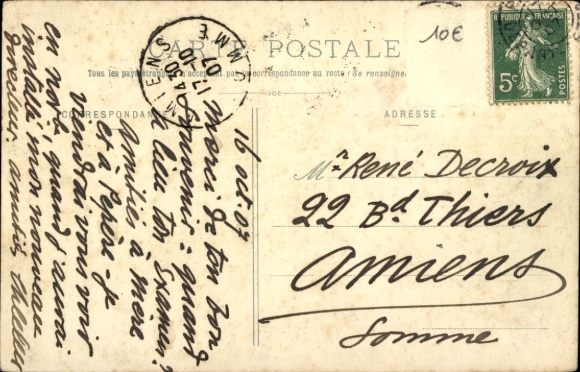 CARTE POSTALE
Tous les pays étrangers n'acceptent pas la correspondance au recto (Se renseigner)
CORRESPONDANCE
ADRESSE
10€
RÉPUBLIQUE FRANÇAISE
5c
AMIENS
9 4 30
17-10
07
SOMME
16 oct. 07
Merci de ton bon
souvenir = quand
a lieu ton Examen?
Amitiés à mère
et à Pépère - je
viendrai vous voir
en nobre, quand j'aurai
installé mon nouveau
directeur. amitiés
Mr René Decroix
22 Bd Thiers
Amiens
Somme